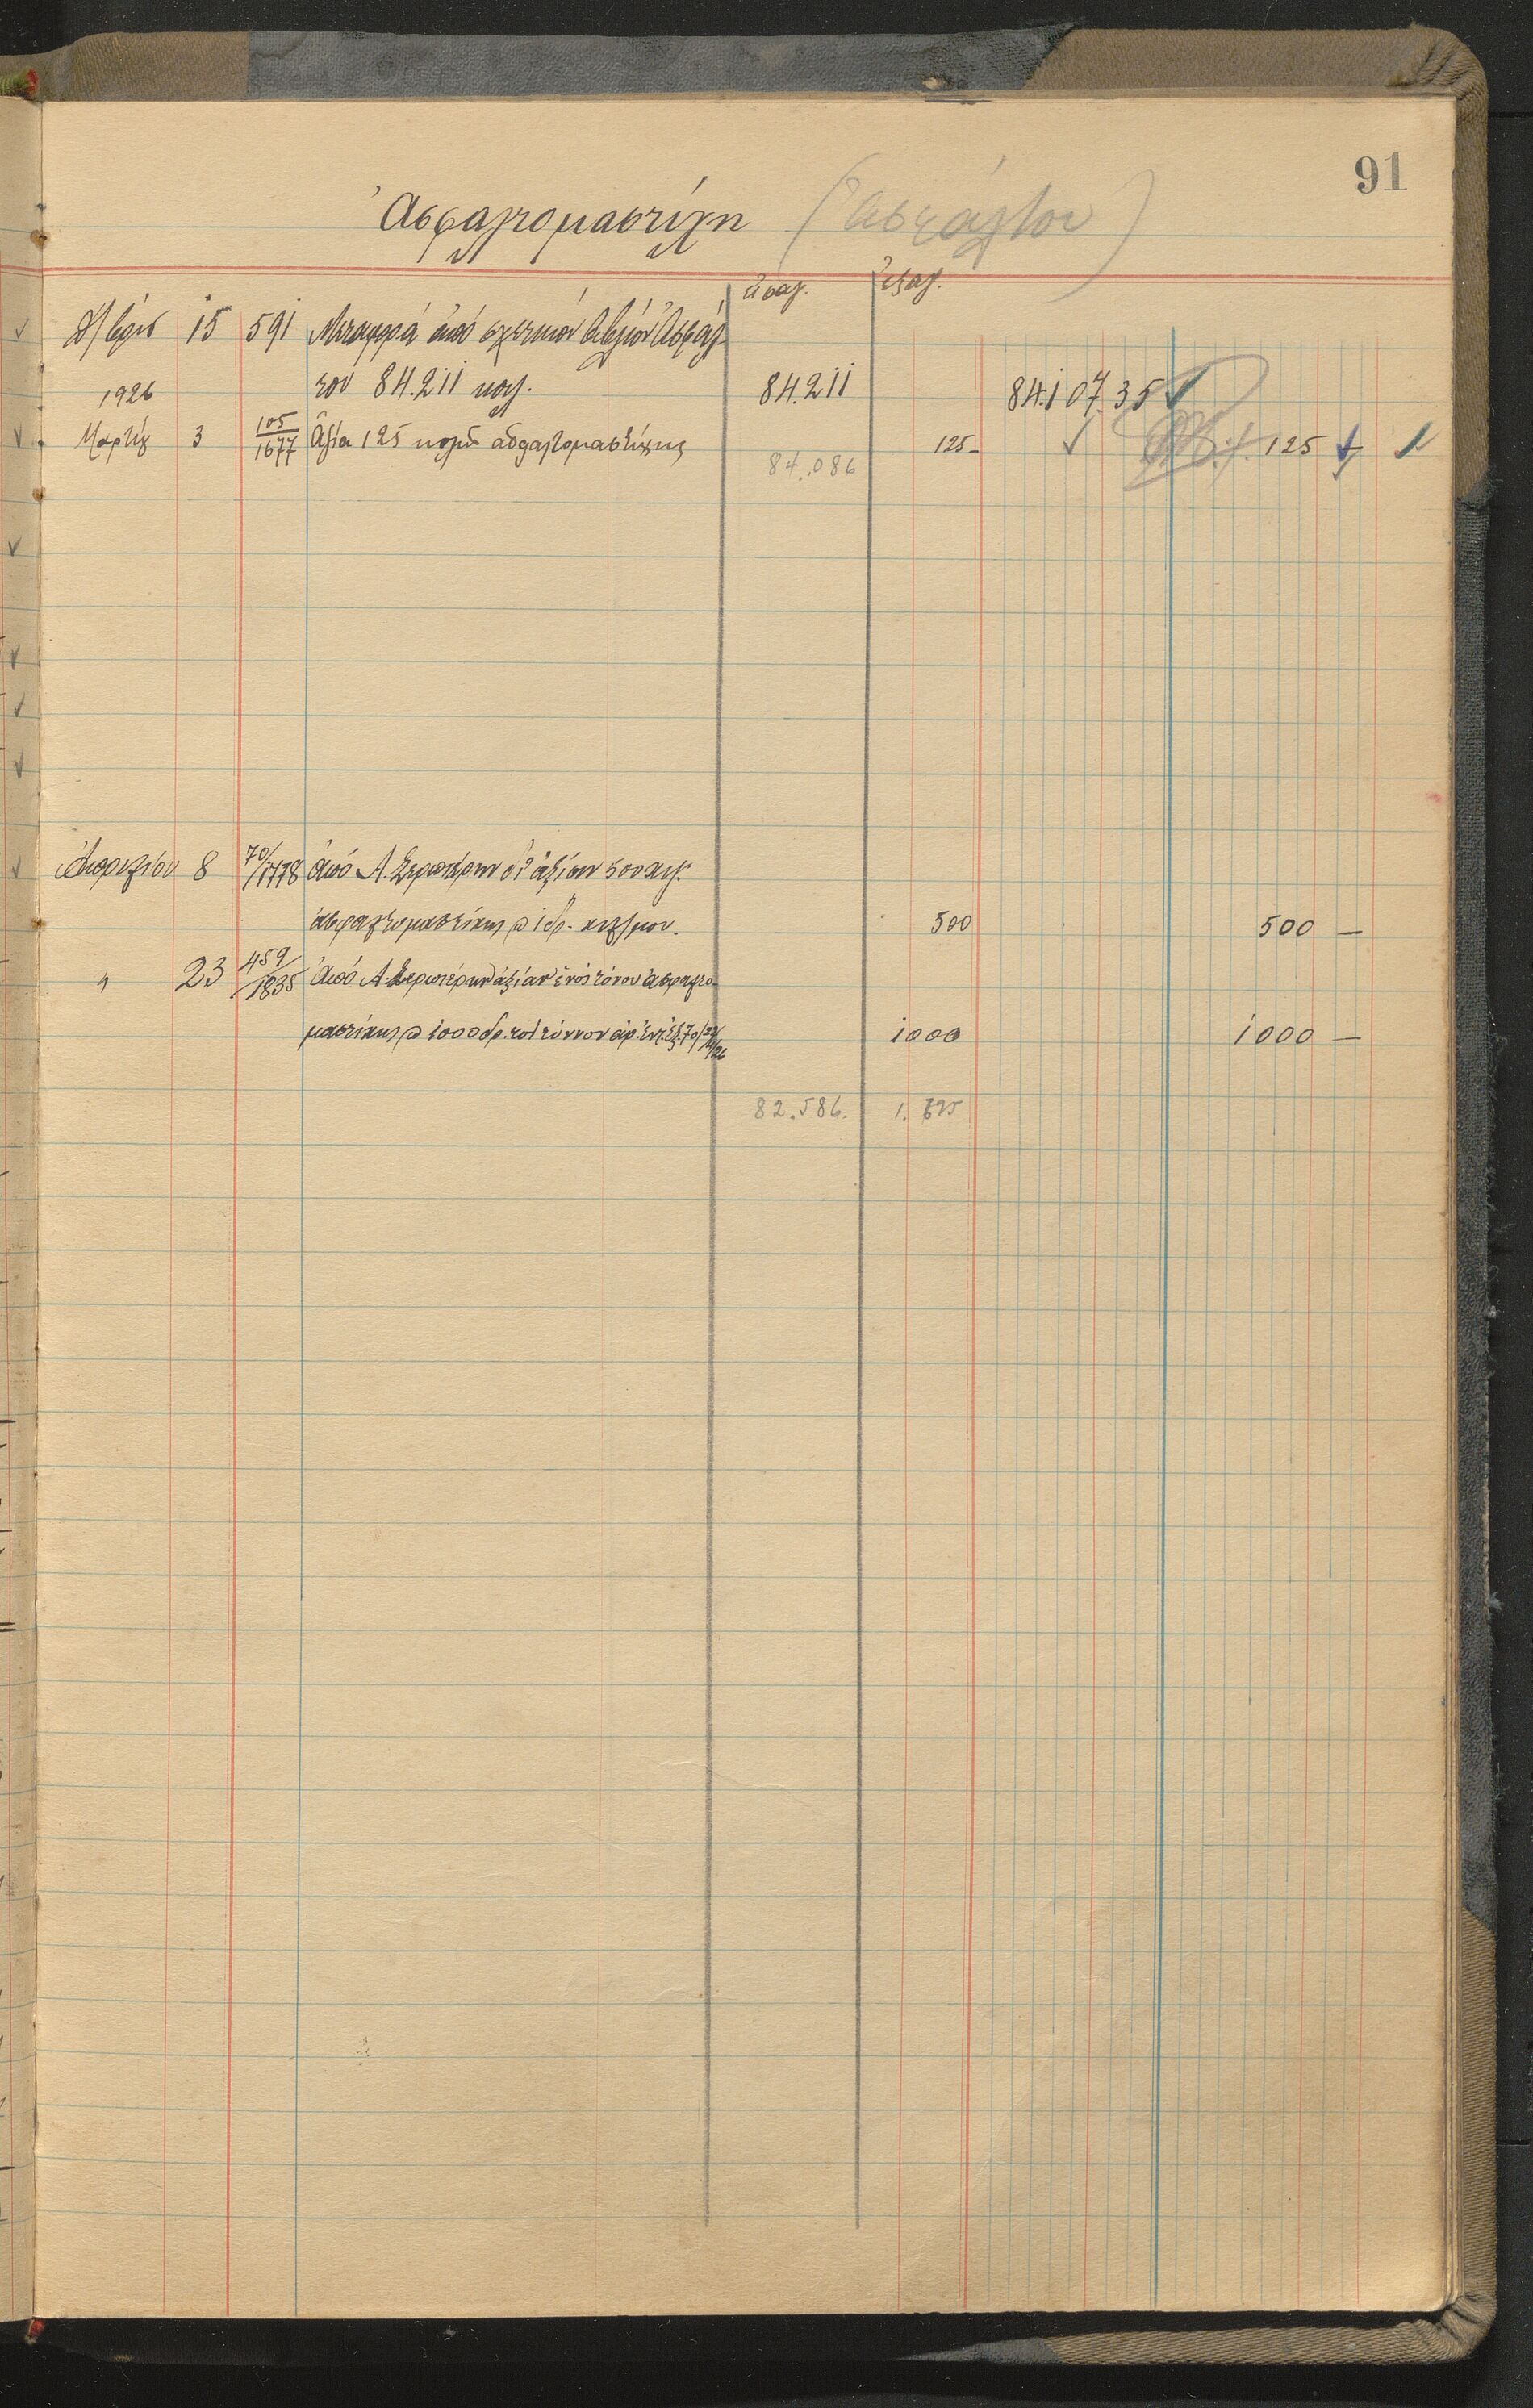 91
Ἀσφαλτομαστίχη (Ἀσφάλτου)
εἰσαγ. ἐξαγ.
15 591 Μεταφορά ἀπό σχετικόν βιβλίον Ἀσφάλ-
του 84.211 κιλ. 84.211 84.107.35
1926
Μαρτίου 3 105/1677 Ἀξία 125 κιλῶν ασφαλτομαστίχης 125- 125
84.086
Ἀπριλίου 8 70/1778 Ἀπό Α. δι' ἀξίαν 500 κιλ.
ἀσφαλτομαστίχης @ 1 δρ. 500 500 —
" 23 459/1835 Ἀπό Α. ἀξίαν ἑνός τόνου ἀσφαλτο-
μαστίχης @ 1000 δρ. τοῦ τόννου ἀρ. 1000 1000 —
82.586. 1.625